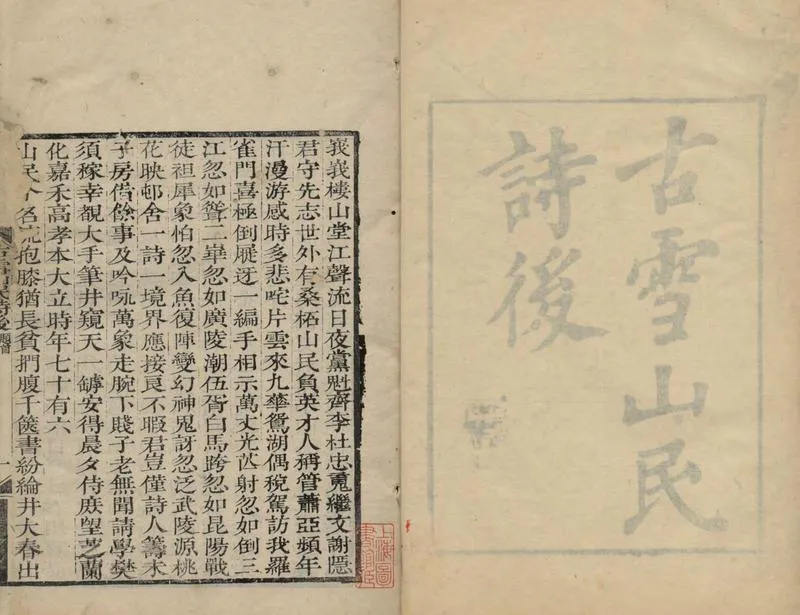 古雪山民
詩後
峩峩樓山堂江聲流日夜黨魁齊李杜忠䰟繼文謝隱
君守先志世外有桑柘山民負英才人稱管蕭亞頻年
汗漫游感時多悲咤片雲來九華鴛湖偶稅駕訪我羅
雀門喜極倒屣迓一編手相示萬丈光芒射忽如倒三
江忽如聳二華忽如廣陵潮伍胥白馬跨忽如昆陽戰
徒袒犀象怕忽入魚復陣變幻神鬼訝忽泛武陵源桃
花映邨舍一詩一境界應接良不暇君豈僅詩人籌未
子房借餘事及吟吭萬象走腕下賤子老無聞請學樊
須稼幸覩大手筆井窺天一罅安得晨夕侍庶望芝蘭
化嘉禾高孝本大立時年七十有六
山民个名流抱膝猶長貧捫腹千篋書紛綸井大春出
上海圖
書館藏